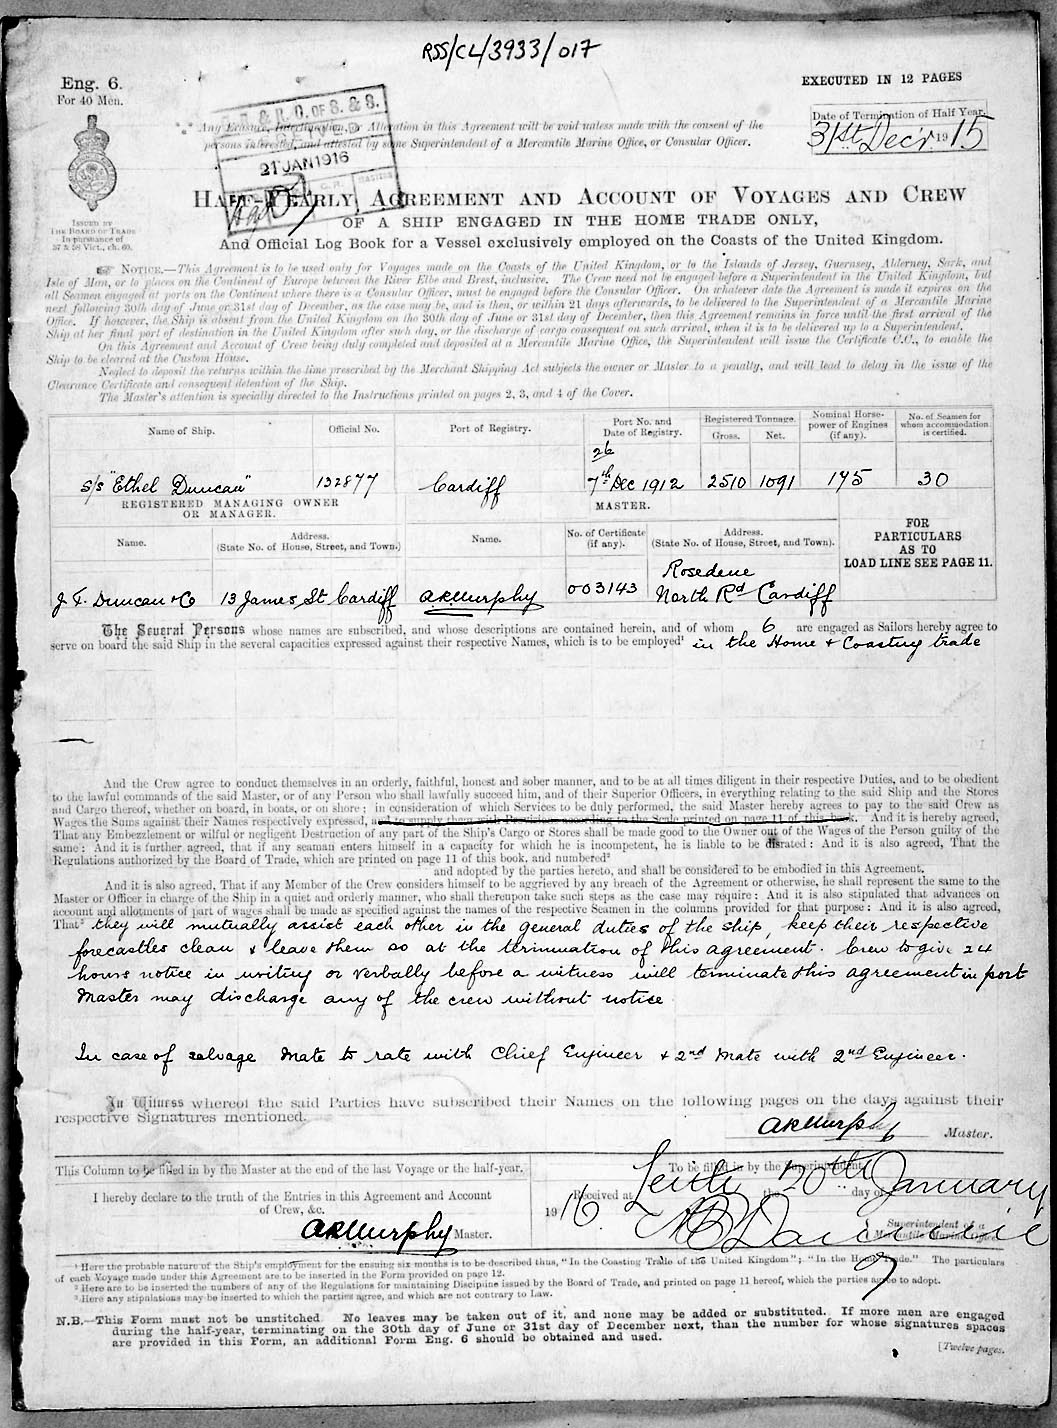 RSS/CL/3933/017
Eng. 6.
For 40 Men.
EXECUTED IN 12 PAGES
Date of Termination of Half Year.
31st Decr 1915
R. G. OF S. & S.
21 JAN 1916
Any Erasure, Interlineation, or Alteration in this Agreement will be void unless made with the consent of the
persons interested, and attested by some Superintendent of a Mercantile Marine Office, or Consular Officer.
ISSUED BY
THE BOARD OF TRADE
In pursuance of
57 & 58 Vict., ch. 60.
HALF-YEARLY AGREEMENT AND ACCOUNT OF VOYAGES AND CREW
OF A SHIP ENGAGED IN THE HOME TRADE ONLY,
And Official Log Book for a Vessel exclusively employed on the Coasts of the United Kingdom.
NOTICE.—This Agreement is to be used only for Voyages made on the Coasts of the United Kingdom, or to the Islands of Jersey, Guernsey, Alderney, Sark, and
Isle of Man, or to places on the Continent of Europe between the River Elbe and Brest, inclusive. The Crew need not be engaged before a Superintendent in the United Kingdom, but
all Seamen engaged at ports on the Continent where there is a Consular Officer, must be engaged before the Consular Officer. On whatever date the Agreement is made it expires on the
next following 30th day of June or 31st day of December, as the case may be, and is then, or within 21 days afterwards, to be delivered to the Superintendent of a Mercantile Marine
Office. If however, the Ship is absent from the United Kingdom on the 30th day of June or 31st day of December, then this Agreement remains in force until the first arrival of the
Ship at her final port of destination in the United Kingdom after such day, or the discharge of cargo consequent on such arrival, when it is to be delivered up to a Superintendent.
On this Agreement and Account of Crew being duly completed and deposited at a Mercantile Marine Office, the Superintendent will issue the Certificate C.C., to enable the
Ship to be cleared at the Custom House.
Neglect to deposit the returns within the time prescribed by the Merchant Shipping Act subjects the owner or Master to a penalty, and will lead to delay in the issue of the
Clearance Certificate and consequent detention of the Ship.
The Master's attention is specially directed to the Instructions printed on pages 2, 3, and 4 of the Cover.
Name of Ship. Official No. Port of Registry. Port No. and Date of Registry. Registered Tonnage. Gross. Net. Nominal Horse-power of Engines (if any). No. of Seamen for whom accommodation is certified.
26
s/s "Ethel Duncan" 132877 Cardiff 7th Dec 1912 2510 1091 175 30
REGISTERED MANAGING OWNER
OR MANAGER.
MASTER.
FOR
PARTICULARS
AS TO
LOAD LINE SEE PAGE 11.
Name. Address. (State No. of House, Street, and Town.) Name. No. of Certificate (if any). Address. (State No. of House, Street, and Town).
J. T. Duncan & Co 13 James St Cardiff A R Murphy 003143 Rosedene
North Rd Cardiff
The Several Persons whose names are subscribed, and whose descriptions are contained herein, and of whom 6 are engaged as Sailors hereby agree to
serve on board the said Ship in the several capacities expressed against their respective Names, which is to be employed¹ in the Home & Coasting trade
And the Crew agree to conduct themselves in an orderly, faithful, honest and sober manner, and to be at all times diligent in their respective Duties, and to be obedient
to the lawful commands of the said Master, or of any Person who shall lawfully succeed him, and of their Superior Officers, in everything relating to the said Ship and the Stores
and Cargo thereof, whether on board, in boats, or on shore; in consideration of which Services to be duly performed, the said Master hereby agrees to pay to the said Crew as
Wages the Sums against their Names respectively expressed, and to supply them with Provisions according to the Scale printed on page 11 of this book. And it is hereby agreed,
That any Embezzlement or wilful or negligent Destruction of any part of the Ship's Cargo or Stores shall be made good to the Owner out of the Wages of the Person guilty of the
same: And it is further agreed, that if any seaman enters himself in a capacity for which he is incompetent, he is liable to be disrated: And it is also agreed, That the
Regulations authorized by the Board of Trade, which are printed on page 11 of this book, and numbered²
and adopted by the parties hereto, and shall be considered to be embodied in this Agreement.
And it is also agreed, That if any Member of the Crew considers himself to be aggrieved by any breach of the Agreement or otherwise, he shall represent the same to the
Master or Officer in charge of the Ship in a quiet and orderly manner, who shall thereupon take such steps as the case may require: And it is also stipulated that advances on
account and allotments of part of wages shall be made as specified against the names of the respective Seamen in the columns provided for that purpose: And it is also agreed,
That³ they will mutually assist each other in the general duties of the ship, keep their respective
forecastles clean & leave them so at the termination of this agreement. Crew to give 24
hours notice in writing or verbally before a witness will terminate this agreement in port
Master may discharge any of the crew without notice
In case of salvage Mate to rate with Chief Engineer & 2nd Mate with 2nd Engineer.
In Witness whereof the said Parties have subscribed their Names on the following pages on the days against their
respective Signatures mentioned.
A R Murphy Master.
This Column to be filled in by the Master at the end of the last Voyage or the half-year.
I hereby declare to the truth of the Entries in this Agreement and Account
of Crew, &c.
A R Murphy Master.
To be filled in by the Superintendent.
Received at Leith the 20th day of January
1916
Superintendent of a
Mercantile Marine Office.
¹ Here the probable nature of the Ship's employment for the ensuing six months is to be described thus, "In the Coasting Trade of the United Kingdom"; "In the Home Trade." The particulars
of each Voyage made under this Agreement are to be inserted in the Form provided on page 12.
² Here are to be inserted the numbers of any of the Regulations for maintaining Discipline issued by the Board of Trade, and printed on page 11 hereof, which the parties agree to adopt.
³ Here any stipulations may be inserted to which the parties agree, and which are not contrary to Law.
N.B.—This Form must not be unstitched. No leaves may be taken out of it, and none may be added or substituted. If more men are engaged
during the half-year, terminating on the 30th day of June or 31st day of December next, than the number for whose signatures spaces
are provided in this Form, an additional Form Eng. 6 should be obtained and used.
[Twelve pages.